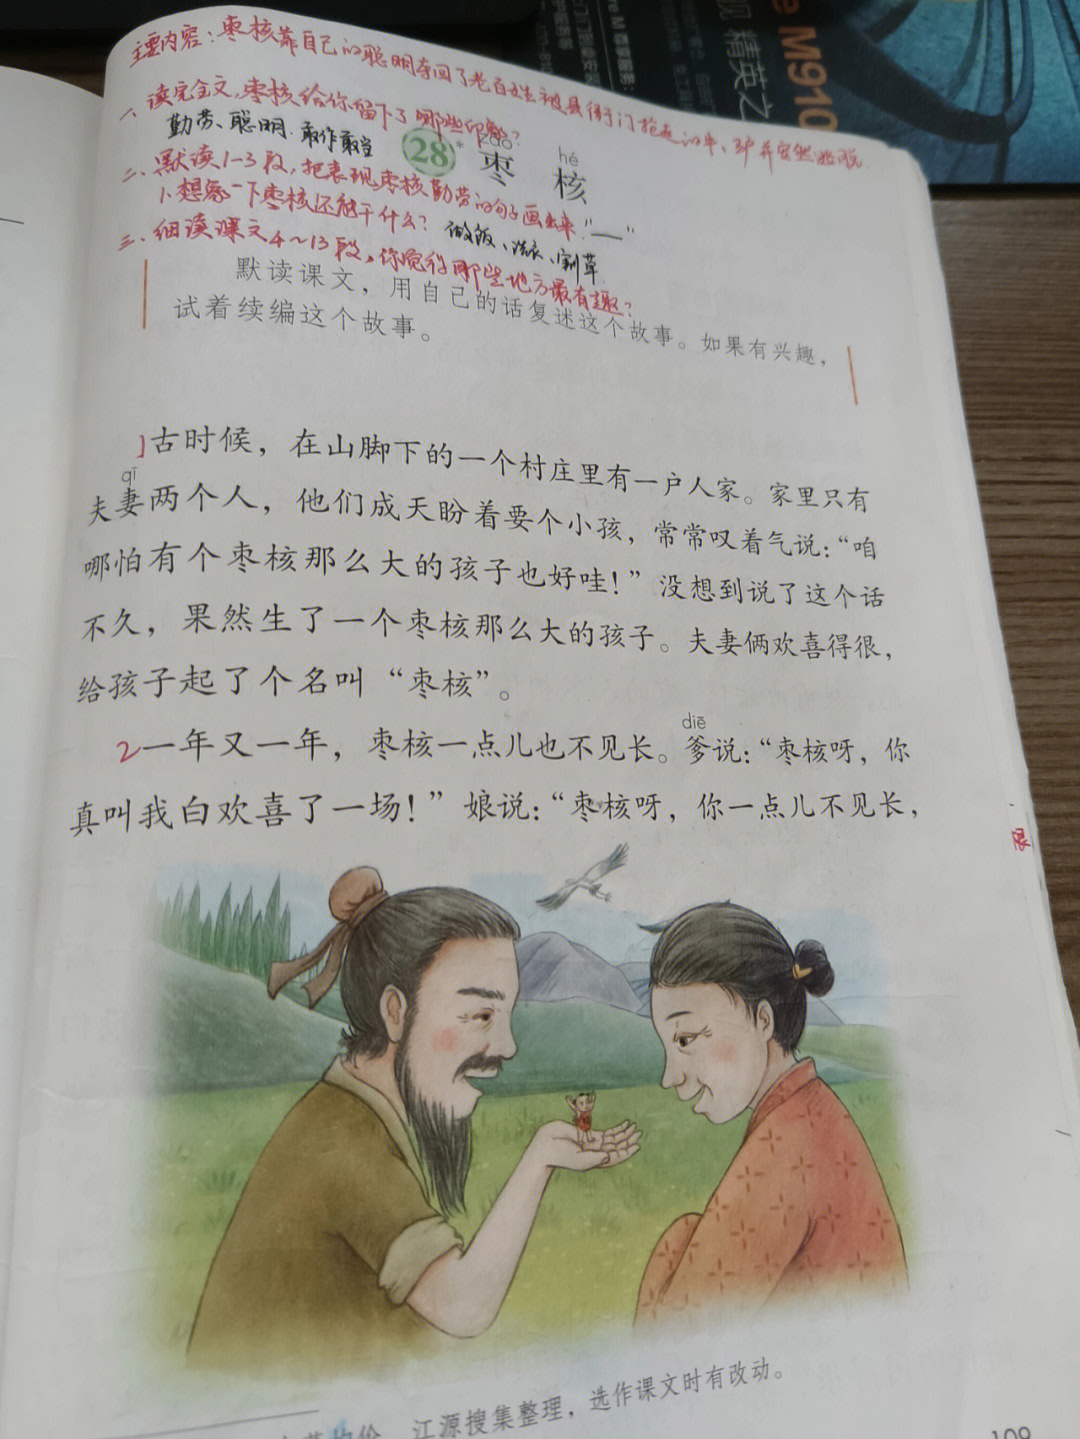 主要内容：枣核靠自己的聪明夺回了老百姓被县衙门抢走的牛、驴并安然逃脱
一、读完全文，枣核给你留下了哪些印象？
勤劳、聪明、敢作敢当
28* 枣核
zǎo hé
二、默读1-3段，把表现枣核勤劳的句子画出来"——"
1.想象一下枣核还能干什么？ 做饭、洗衣、割草
三、细读课文4~13段，你觉得哪些地方最有趣？
默读课文，用自己的话复述这个故事。如果有兴趣，
试着续编这个故事。
1古时候，在山脚下的一个村庄里有一户人家。家里只有
qī
夫妻两个人，他们成天盼着要个小孩，常常叹着气说：“咱
哪怕有个枣核那么大的孩子也好哇！”没想到说了这个话
不久，果然生了一个枣核那么大的孩子。夫妻俩欢喜得很，
给孩子起了个名叫“枣核”。
diē
2一年又一年，枣核一点儿也不见长。爹说：“枣核呀，你
真叫我白欢喜了一场！”娘说：“枣核呀，你一点儿不见长，
江源搜集整理，选作课文时有改动。
109
M910
视 精英之